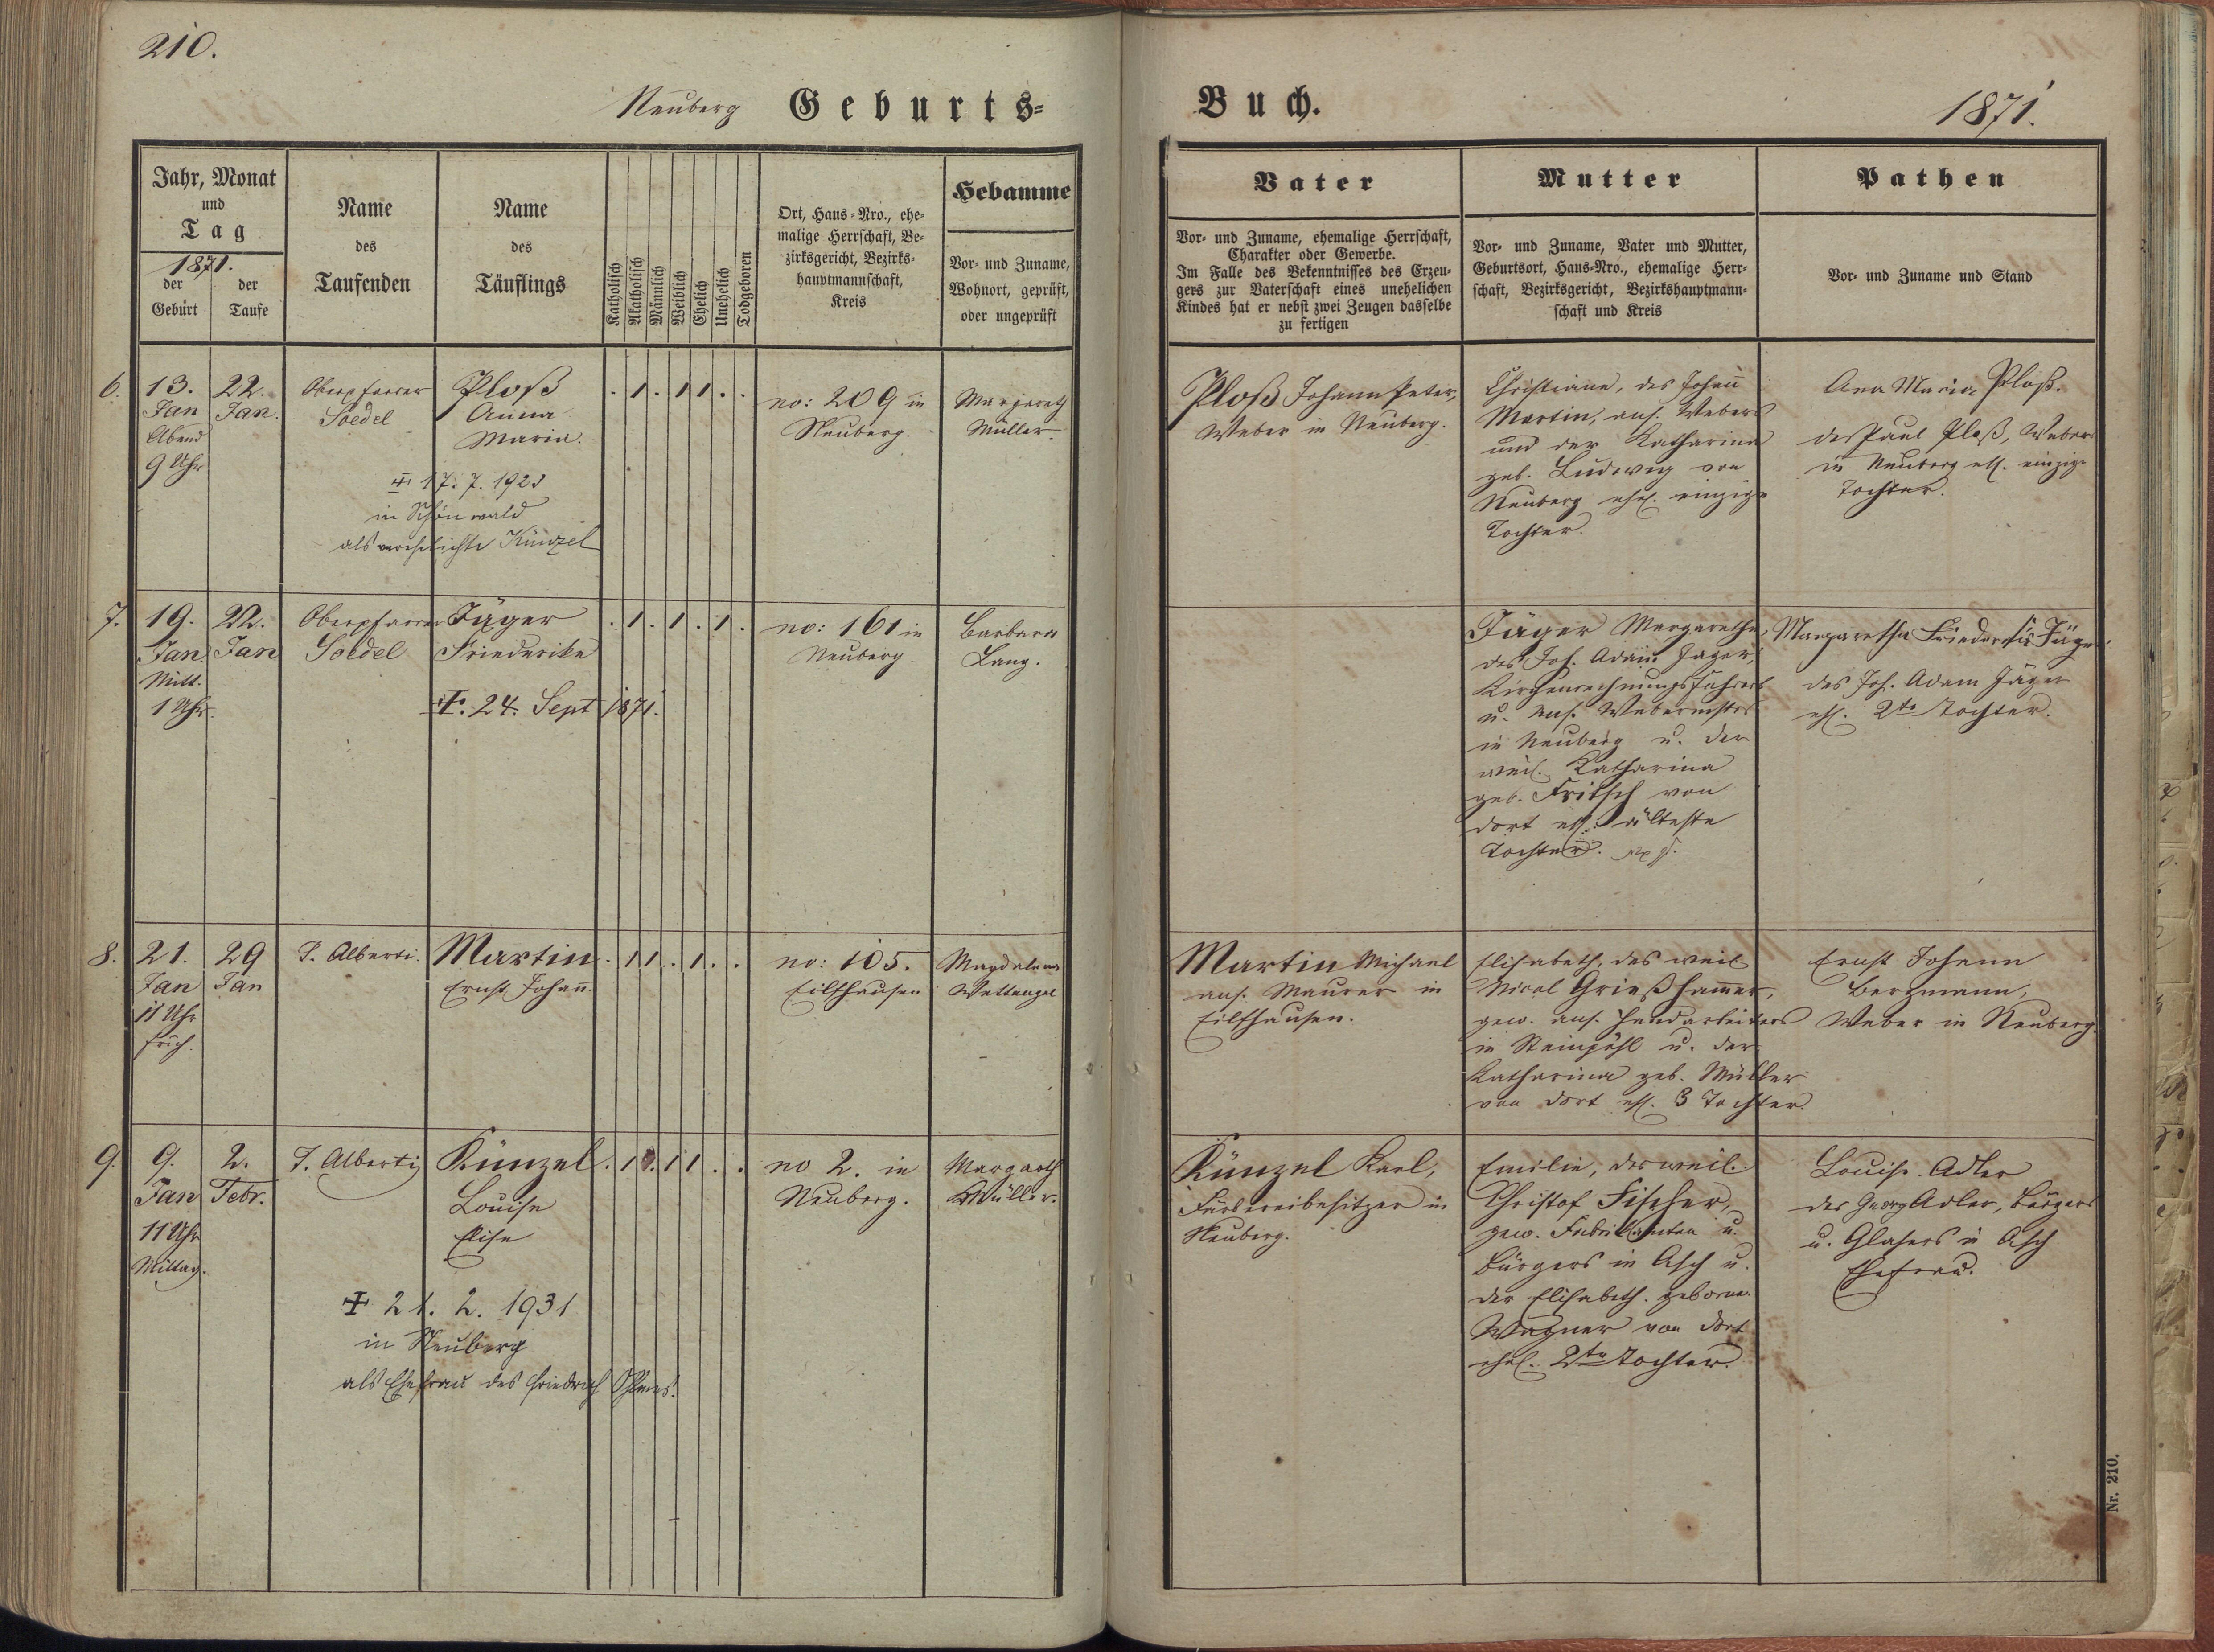 210.
Neuberg Geburts-
Buch.
1871.
Jahr, Monat
und
Tag
1871.
der Geburt
der Taufe
Name
des
Taufenden
Name
des
Täuflings
Katholisch
Akatholisch
Männlich
Weiblich
Ehelich
Unehelich
Todgeboren
Ort, Haus-Nro., ehe-
malige Herrschaft, Be-
zirksgericht, Bezirks-
hauptmannschaft,
Kreis
Hebamme
Vor- und Zuname,
Wohnort, geprüft,
oder ungeprüft
Vater
Vor- und Zuname, ehemalige Herrschaft,
Charakter oder Gewerbe.
Im Falle des Bekenntnisses des Erzeu-
gers zur Vaterschaft eines unehelichen
Kindes hat er nebst zwei Zeugen dasselbe
zu fertigen
Mutter
Vor- und Zuname, Vater und Mutter,
Geburtsort, Haus-Nro., ehemalige Herr-
schaft, Bezirksgericht, Bezirkshauptmann-
schaft und Kreis
Pathen
Vor- und Zuname und Stand
6.
13.
Jan
Abend
9 Uhr
22.
Jan.
Oberpfarrer
Soedel
Ploß
Anna
Maria.
. 1 . 1 1 . .
no: 209 in
Neuberg.
Margareth
Müller.
17. 7. 1923
in Schönwald
als verehelichte Künzel
Ploß Johann Peter,
Weber in Neuberg.
Christiane, des Johañ
Martin, ans. Webers
und der Katharina
geb. Ludwig von
Neuberg ehel. einzige
Tochter.
Ana Maria Ploß.
des Paul Ploß, Webers
in Neuberg ehl. einzige
Tochter.
7.
19.
Jan.
Mitt.
1 Uhr.
22.
Jan
Oberpfarrer
Soedel
Jäger
Friederike
. 1 . 1 . 1 .
no: 161 in
Neuberg
Barbara
Lang.
24. Sept 1871.
Jäger Margaretha,
des Joh. Adam Jäger,
Kirchenrechnungsführers
u. ans. Webermstrs
in Neuberg u. der
weil. Katharina
geb. Fritsch von
dort ehl. älteste
Tochter.
Margaretha Friederika Jäger
des Joh. Adam Jäger
ehl. 2te Tochter.
8.
21.
Jan
11 Uhr
früh.
29
Jan
T. Alberti.
Martin
Ernst Johañ.
. 1 1 . 1 . .
no: 105.
Eilfhausen
Magdalena
Wettengel
Martin Michael
ans. Maurer in
Eilfhausen.
Elisabeth, des weil
Nicol Grießham̃er,
gew. ans. Handarbeiters
in Steinpöhl u. der
Katharina geb. Müller
von dort ehl. 3 Tochter.
Ernst Johann
Bergmann,
Weber in Neuberg.
9.
9.
Jan
11 Uhr
Mittag.
2.
Febr.
T. Alberti
Künzel
Louise
Elise
. 1 . 1 1 . .
no 2. in
Neuberg.
Margareth
Müller.
21. 2. 1931
in Neuberg
als Ehefrau des Friedrich
Künzel Karl,
Färbereibesitzer in
Neuberg.
Emilie, des weil.
Christof Fischer,
gew. Fabrikanten u.
Bürgers in Asch u.
der Elisabeth. geborne
Wagner von dort
ehel. 2te Tochter.
Louise Adler
des Georg Adler, Bürgers
u. Glasers in Asch
Ehefrau.
Nr. 210.